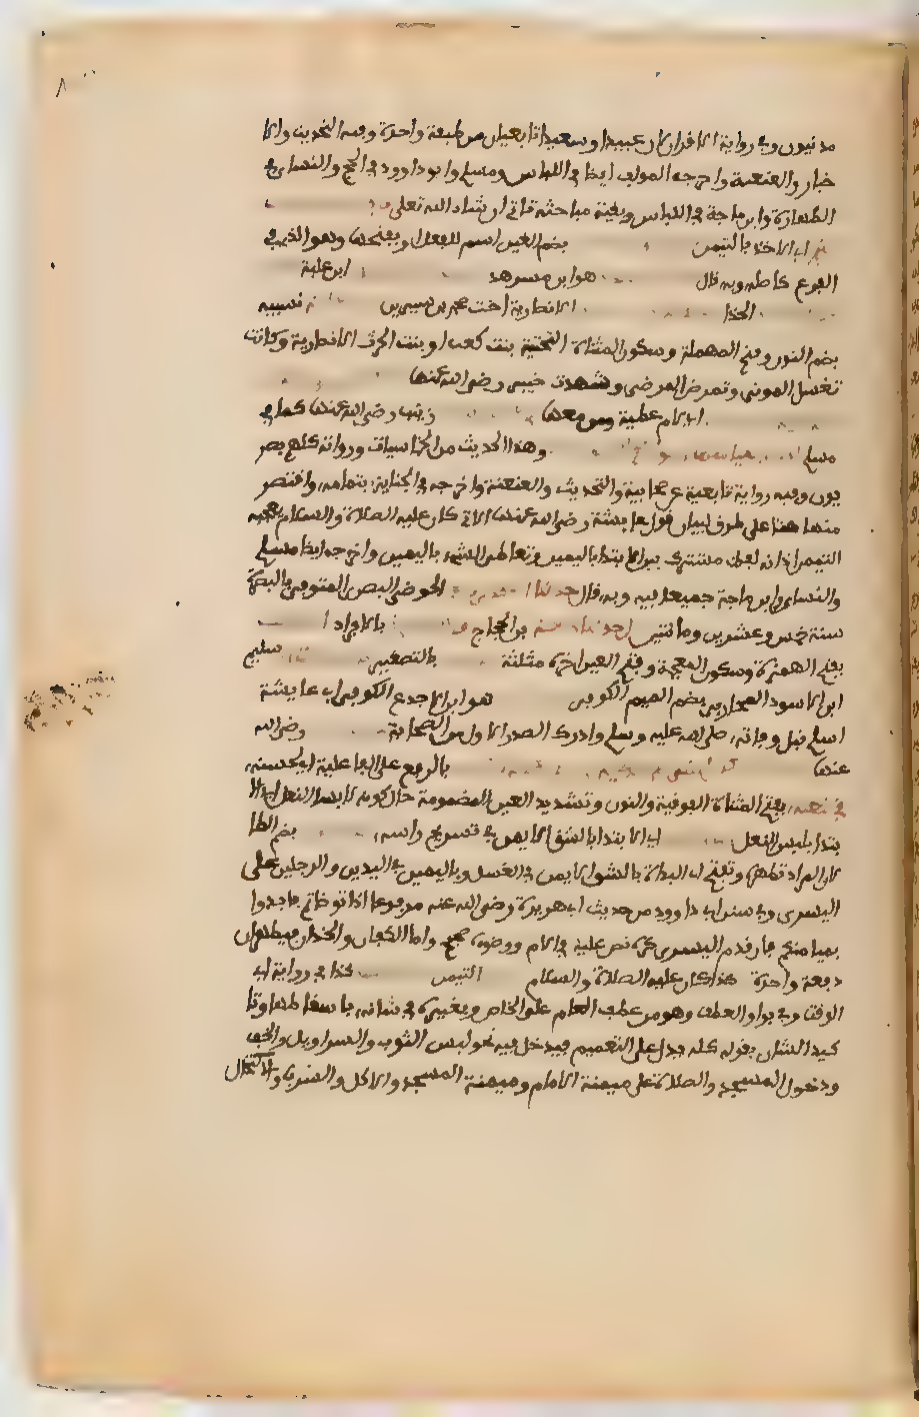 مدنيون وفيه رواية الاقران لان عبيدا وسعيدا تابعيان من طبقة واحدة وفيه التحديث والا
خبار والعنعنة واخرجه المولف ايضا في اللباس ومسلم وابو داوود في الحج والنساءي في
الطهارة وابن ماجة في اللباس وبقية مباحثه تاتي ان شاء الله تعلى
اي الاخذ باليمين بضم الغين اسم للفعل او بفتحها وهو الذي في
الفرع كاصله وبه قال هو ابن مسرهد ابن علية
الحذا الانصارية اخت محمد بن سيرين نسيبه
بضم النون وفتح المهملة وسكون المثناة التحتية بنت كعب او بنت الحرث الانصارية وكانت
تغسل الموتى وتمرض المرضى وشهدت خيبر رضي الله عنها
اي لام عطية ومن معها زينب رضي الله عنها كما في
مسلم وهذا الحديث من الخماسيات ورواته كلهم بصر
يون وفيه رواية تابعية عن صحابية والتحديث والعنعنة واخرجه في الجنايز بتمامه واقتصر
منها هنا على طرف لبيان قول عايشة رضي الله عنها الاتي كان عليه الصلاة والسلام يعجبه
التيمن اذ انه لفظ مشترك بين الابتدا باليمين وتعاطي الشيء باليمين واخرجه ايضا مسلم
والنساءي وابن ماجة جميعا فيه وبه قال حدثنا الحوضي البصري المتوفى بالبصرة
سنة خمس وعشرين ومائتين بن الحجاج بالافراد
بفتح الهمزة وسكون المعجمة وفتح العين اخره مثلثة بالتصغير سليم
ابن الاسود المحاربي بضم الميم الكوفي هو ابن الاجدع الكوفي ابي عايشة
اسلم قبل وفاته صلى الله عليه وسلم وادرك الصدر الاول من الصحابة رضي الله
عنها بالرفع على الفاعلية اي لحسنه
في تنعله بفتح المثناة الفوقية والنون وتشديد العين المضمومة حال كونه لابسا النعل اي الا
بتدا بلبس النعل اي الابتدا بالشق الايمن في تسريح راسه بضم الطا
لان المراد تطهره وتفتح اي البداة بالشق الايمن في الغسل وباليمين في اليدين والرجلين على
اليسرى وفي سنن ابي داوود من حديث ابي هريرة رضي الله عنه مرفوعا اذا توضاتم فابدوا
بميامنكم فان قدم اليسرى كره نص عليه في الام ووضوه صحيح واما الكفان والخدان فيطهران
دفعة واحدة كذا كان عليه الصلاة والسلام التيمن كذا في رواية ابي
الوقت وفي بواو العطف وهو من عطف العام على الخاص ولغيره في شانه باسقاطها وتا
كيد الشان بقوله كله يدل على التعميم فيدخل فيه نحو لبس الثوب والسراويل والخف
ودخول المسجد والصلاة على ميمنة الامام وميمنة المسجد والاكل والشرب والاكتحال